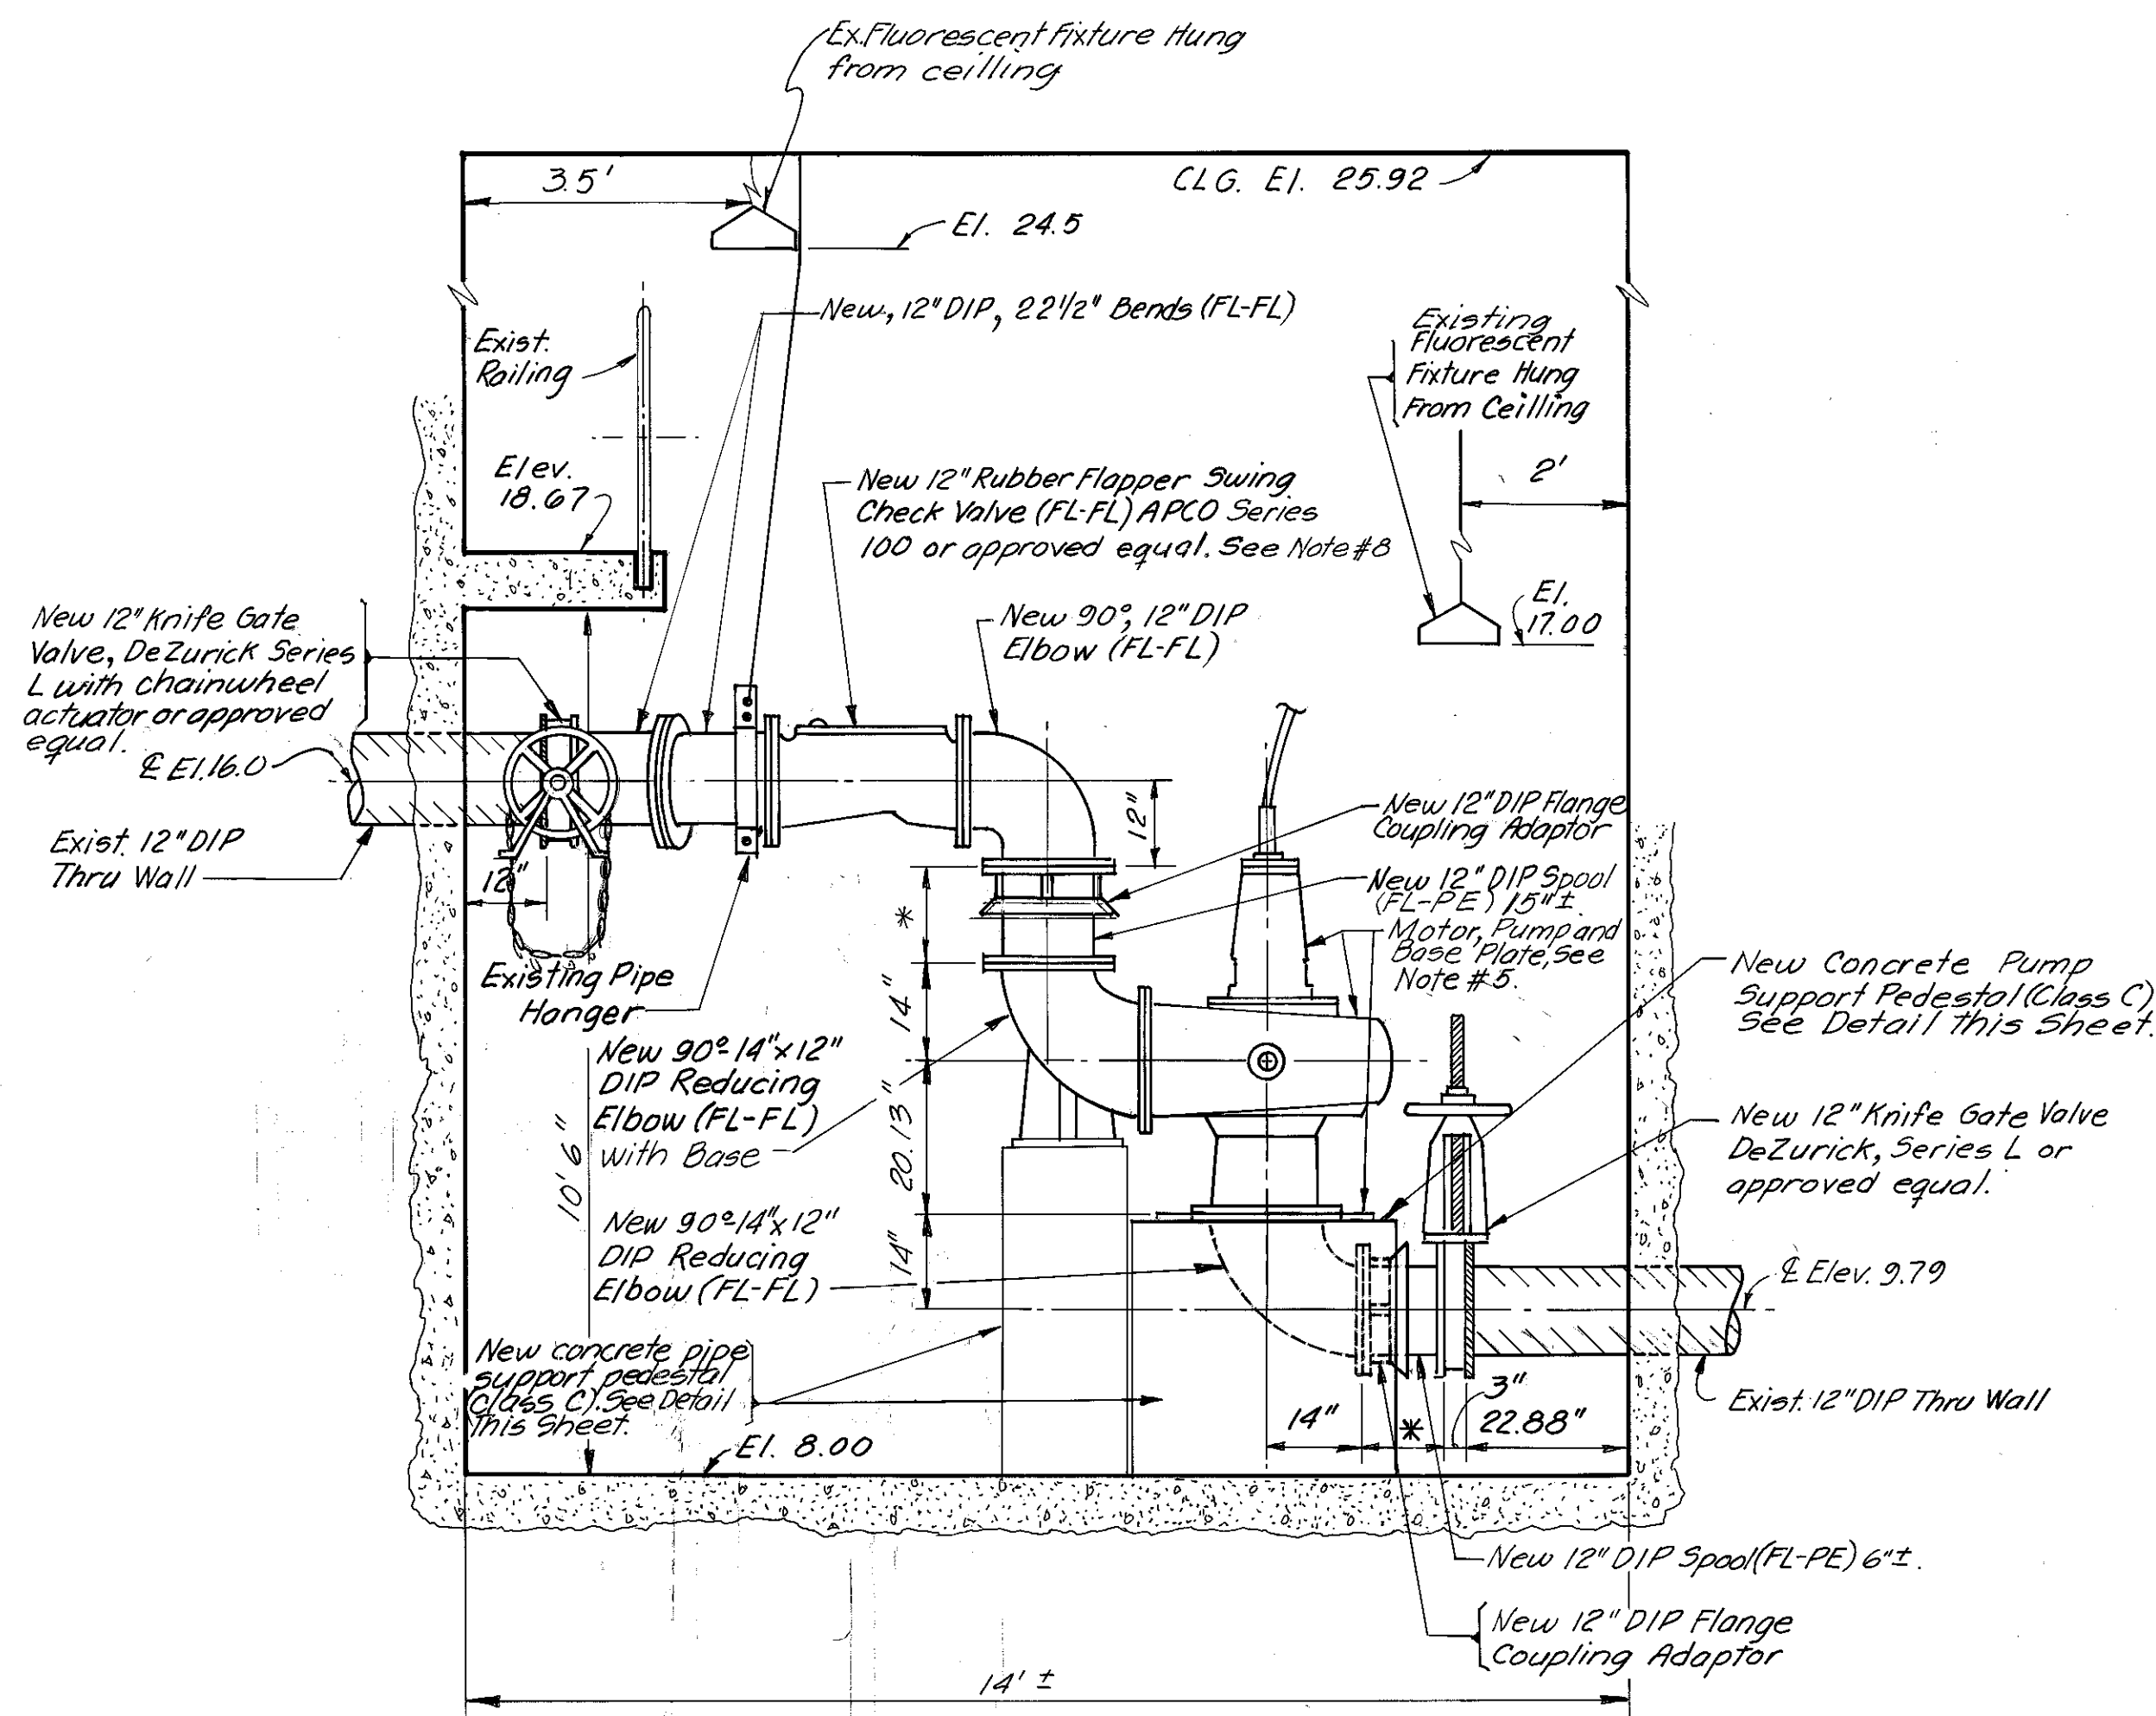 Ex.Fluorescent Fixture Hung
from ceilling
3.5'
CLG. El. 25.92
El. 24.5
New, 12" DIP, 22 1/2" Bends (FL-FL)
Exist.
Railing
Existing
Fluorescent
Fixture Hung
From Ceilling
2'
Elev.
18.67
New 12" Rubber Flapper Swing
Check Valve (FL-FL) APCO Series
100 or approved equal. See Note #8
El.
17.00
New 12" Knife Gate
Valve, DeZurick Series
L with chainwheel
actuator or approved
equal.
New 90°, 12" DIP
Elbow (FL-FL)
℄ El. 16.0
Exist. 12" DIP
Thru Wall
12"
12"
New 12" DIP Flange
Coupling Adaptor
New 12" DIP Spool
(FL-PE) 15"±
Motor, Pump and
Base Plate, See
Note #5.
*
Existing Pipe
Hanger
14"
New Concrete Pump
Support Pedestal (Class C)
See Detail this Sheet.
New 90°-14"x12"
DIP Reducing
Elbow (FL-FL)
with Base
20.13"
10' 6"
New 12" Knife Gate Valve
DeZurick, Series L or
approved equal.
New 90°-14"x12"
DIP Reducing
Elbow (FL-FL)
14"
℄ Elev. 9.79
New concrete pipe
support pedestal
(class C). See Detail
this Sheet.
El. 8.00
14"
*
3"
22.88"
Exist. 12" DIP Thru Wall
New 12" DIP Spool (FL-PE) 6"±.
New 12" DIP Flange
Coupling Adaptor
14' ±